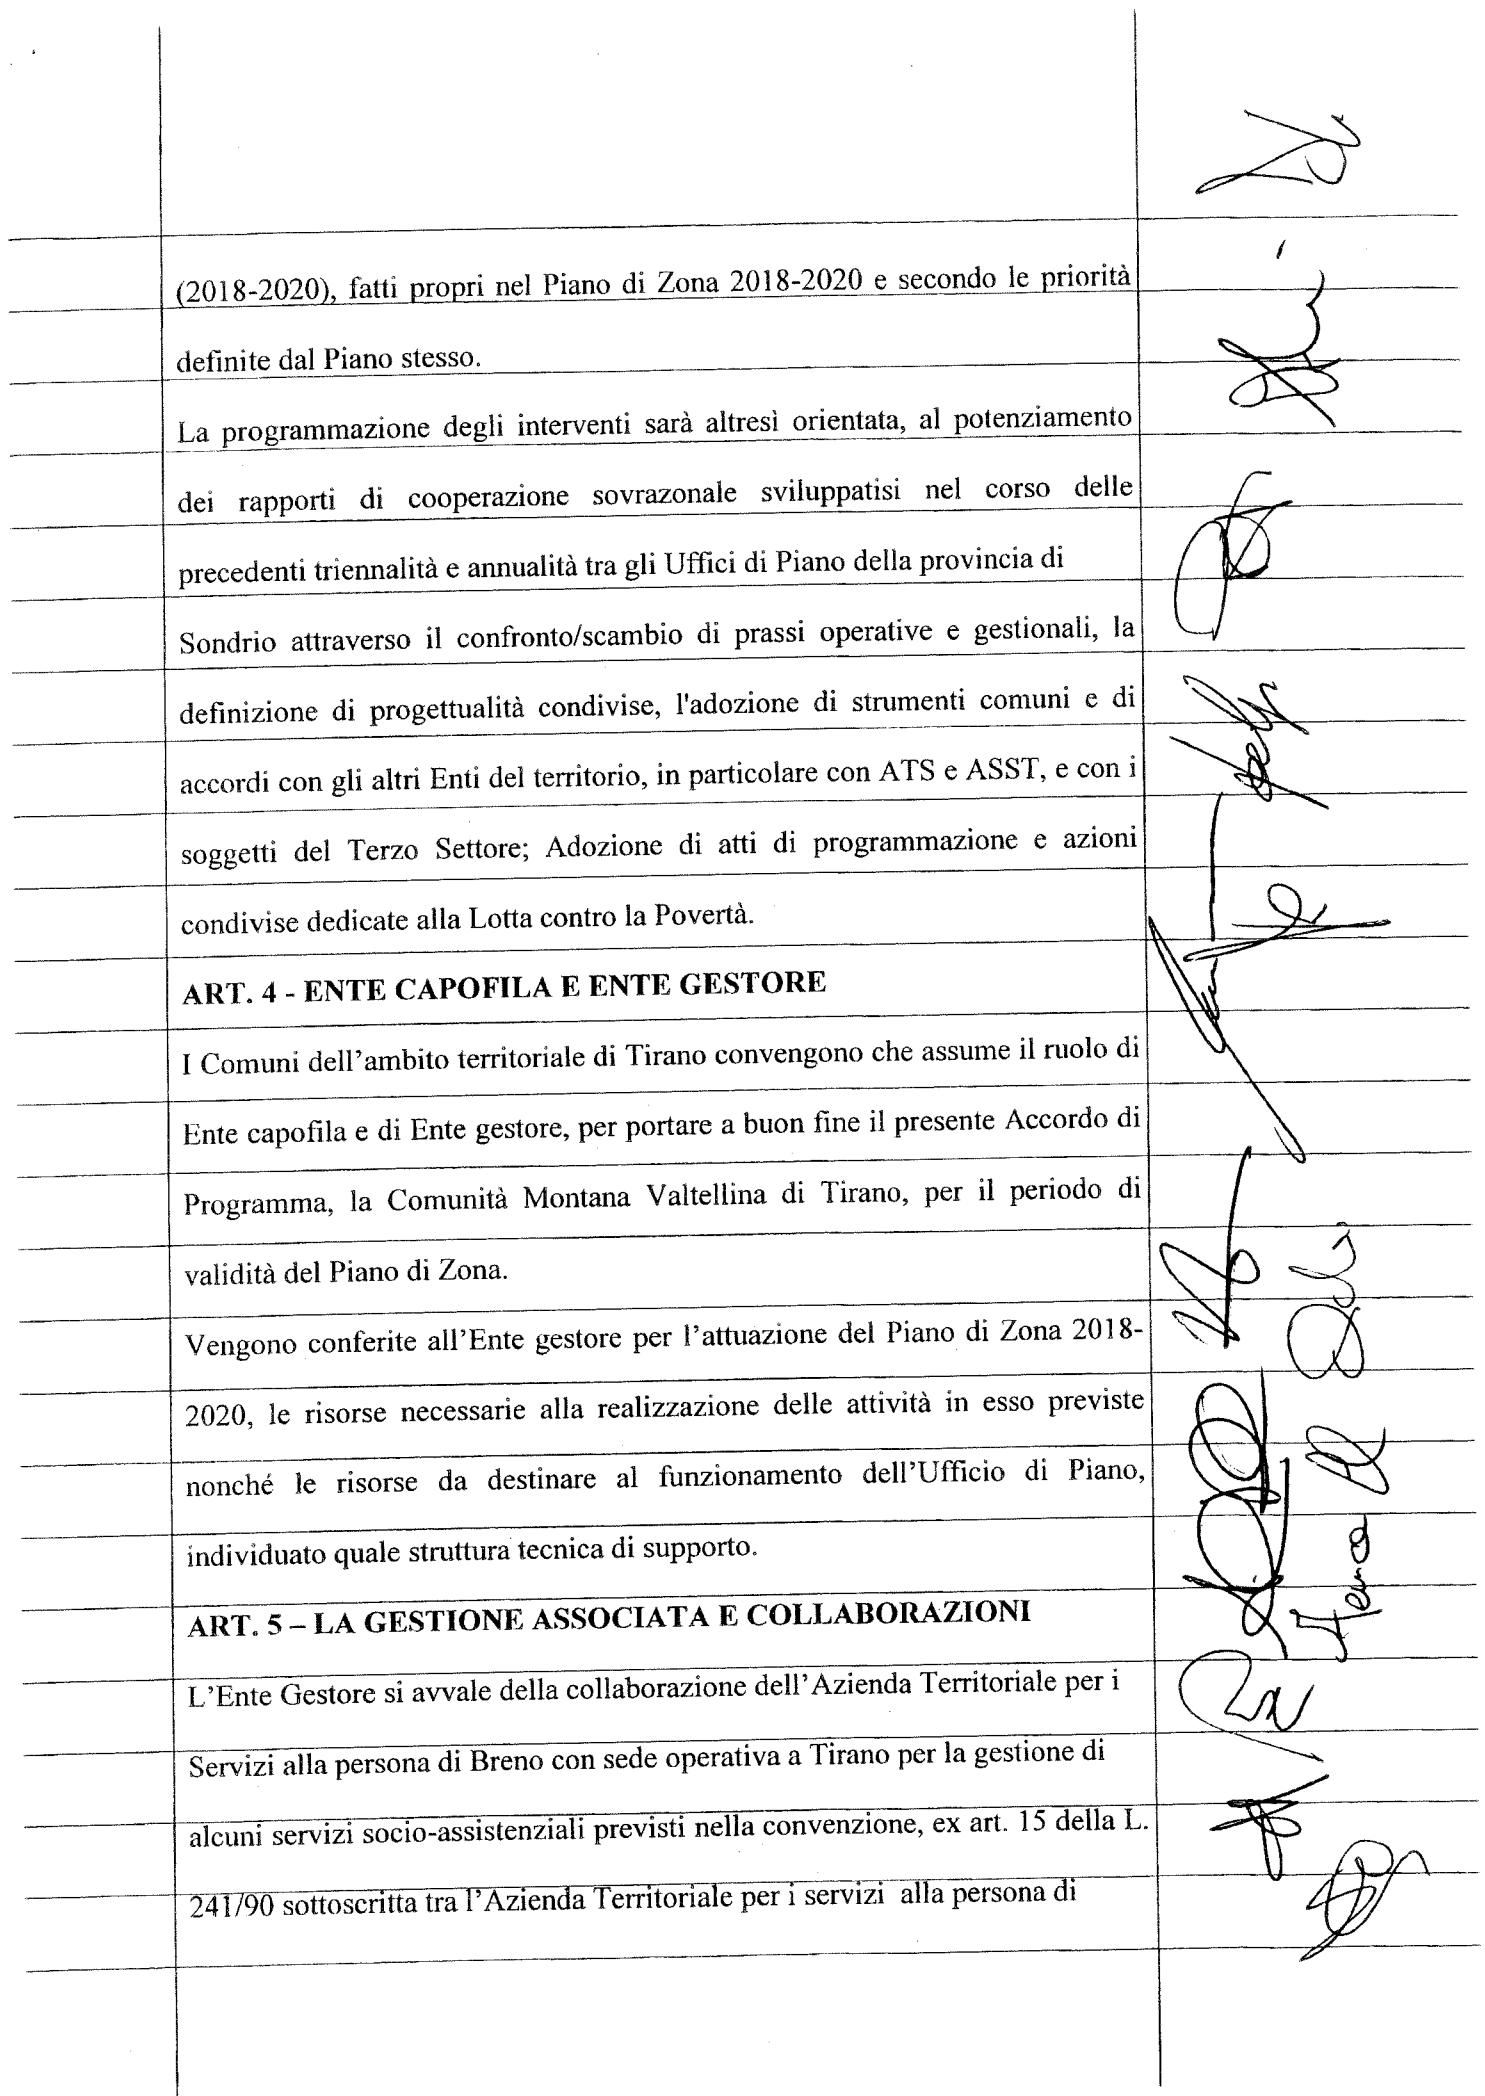 (2018-2020), fatti propri nel Piano di Zona 2018-2020 e secondo le priorità
definite dal Piano stesso.
La programmazione degli interventi sarà altresì orientata, al potenziamento
dei rapporti di cooperazione sovrazonale sviluppatisi nel corso delle
precedenti triennalità e annualità tra gli Uffici di Piano della provincia di
Sondrio attraverso il confronto/scambio di prassi operative e gestionali, la
definizione di progettualità condivise, l'adozione di strumenti comuni e di
accordi con gli altri Enti del territorio, in particolare con ATS e ASST, e con i
soggetti del Terzo Settore; Adozione di atti di programmazione e azioni
condivise dedicate alla Lotta contro la Povertà.
ART. 4 - ENTE CAPOFILA E ENTE GESTORE
I Comuni dell’ambito territoriale di Tirano convengono che assume il ruolo di
Ente capofila e di Ente gestore, per portare a buon fine il presente Accordo di
Programma, la Comunità Montana Valtellina di Tirano, per il periodo di
validità del Piano di Zona.
Vengono conferite all’Ente gestore per l’attuazione del Piano di Zona 2018-
2020, le risorse necessarie alla realizzazione delle attività in esso previste
nonché le risorse da destinare al funzionamento dell’Ufficio di Piano,
individuato quale struttura tecnica di supporto.
ART. 5 – LA GESTIONE ASSOCIATA E COLLABORAZIONI
L’Ente Gestore si avvale della collaborazione dell’Azienda Territoriale per i
Servizi alla persona di Breno con sede operativa a Tirano per la gestione di
alcuni servizi socio-assistenziali previsti nella convenzione, ex art. 15 della L.
241/90 sottoscritta tra l’Azienda Territoriale per i servizi alla persona di